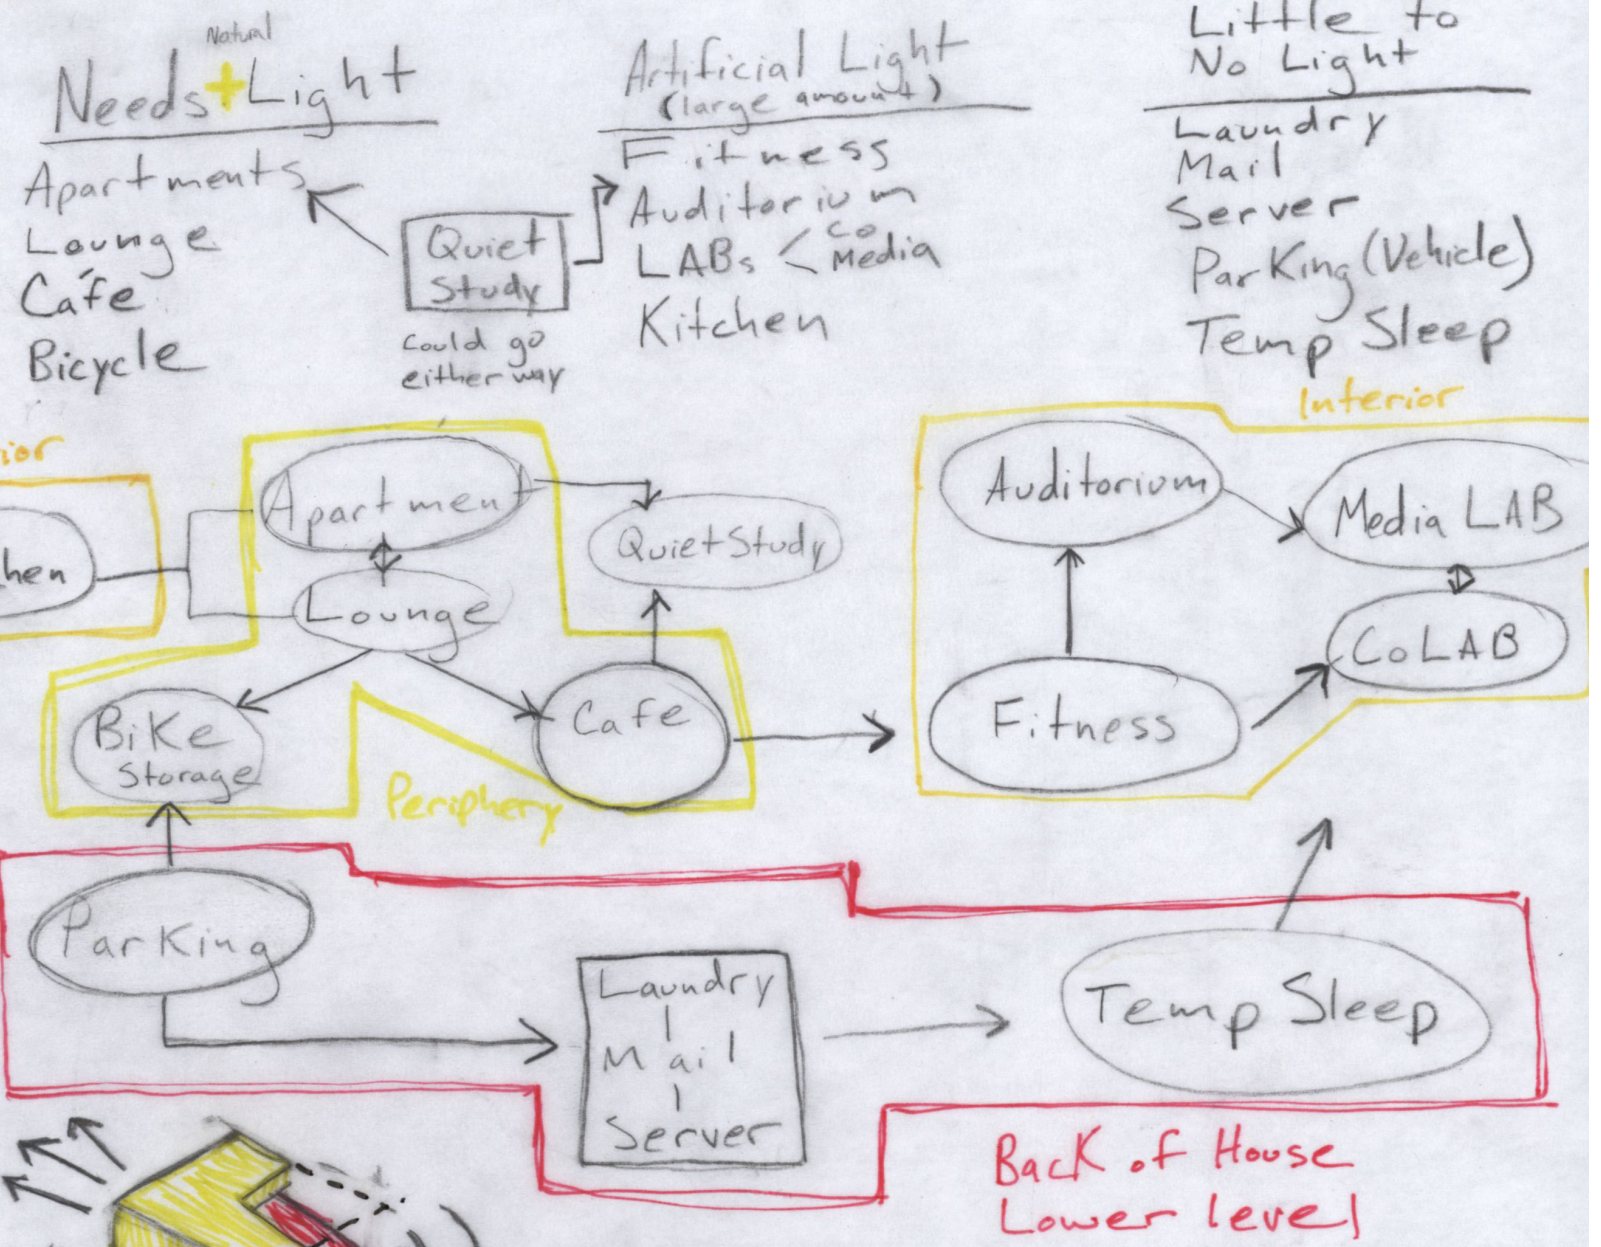 Natural
Needs + Light
Apartments
Lounge
Café
Bicycle
Quiet
Study
Could go
either way
Artificial Light
(large amount)
Fitness
Auditorium
LABs < Co
Media
Kitchen
Little to
No Light
Laundry
Mail
Server
Parking (Vehicle)
Temp Sleep
Interior
ior
hen
Apartment
Lounge
Quiet Study
Bike
Storage
Cafe
Periphery
Auditorium
Media LAB
CoLAB
Fitness
Parking
Laundry
Mail
Server
Temp Sleep
Back of House
Lower level